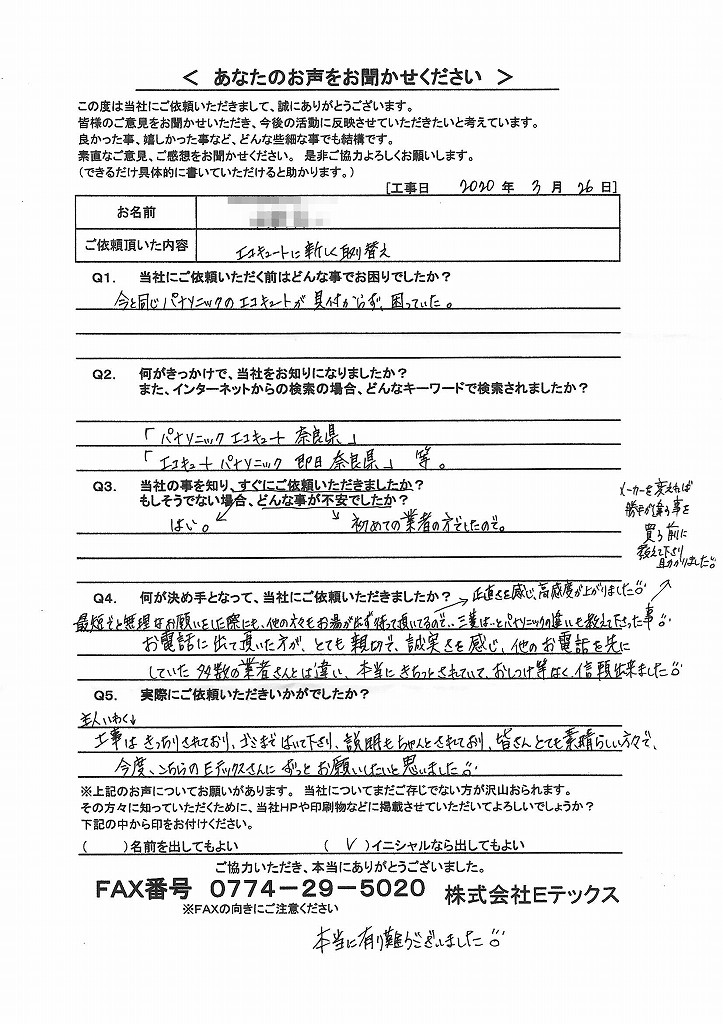 ＜ あなたのお声をお聞かせください ＞
この度は当社にご依頼いただきまして、誠にありがとうございます。
皆様のご意見をお聞かせいただき、今後の活動に反映させていただきたいと考えています。
良かった事、嬉しかった事など、どんな些細な事でも結構です。
素直なご意見、ご感想をお聞かせください。 是非ご協力よろしくお願いします。
（できるだけ具体的に書いていただけると助かります。）
[工事日 2020 年 3 月 26 日]
お名前
ご依頼頂いた内容 エコキュートに新しく取り替え
Q1. 当社にご依頼いただく前はどんな事でお困りでしたか？
今と同じパナソニックのエコキュートが見付からず、困っていた。
Q2. 何がきっかけで、当社をお知りになりましたか？
また、インターネットからの検索の場合、どんなキーワードで検索されましたか？
「パナソニック エコキュート 奈良県」
「エコキュート パナソニック 即日 奈良県」 等。
Q3. 当社の事を知り、すぐにご依頼いただきましたか？
もしそうでない場合、どんな事が不安でしたか？
はい。 初めての業者の方でしたので。
メーカーを変えれば
勝手が違う事を
買う前に
教えて下さり
助かりました
Q4. 何が決め手となって、当社にご依頼いただきましたか？
正直さを感じ、高感度が上がりました
最短でと無理なお願いをした際にも、他の方々もお湯が出ず待って頂いてるので、三菱さんとパナソニックの違いも教えて下さった事
お電話に出て頂いた方が、とても親切で、誠実さを感じ、他のお電話を先に
していた多数の業者さんとは違い、本当にきちっとされていて、おしつけ等なく、信頼出来ました
Q5. 実際にご依頼いただきいかがでしたか？
主人いわく↓
工事はきっちりされており、ゴミまではいて下さり、説明もちゃんとされており、皆さんとても素晴らしい方々で、
今度、こちらのEテックスさんにずっとお願いしたいと思いました
※上記のお声についてお願いがあります。 当社についてまだご存じでない方が沢山おられます。
その方々に知っていただくために、当社HPや印刷物などに掲載させていただいてよろしいでしょうか？
下記の中から印をお付けください。
（　）名前を出してもよい （ ✓ ）イニシャルなら出してもよい
ご協力いただき、本当にありがとうございました。
FAX番号 0774－29－5020 株式会社Eテックス
※FAXの向きにご注意ください
本当に有り難うございました